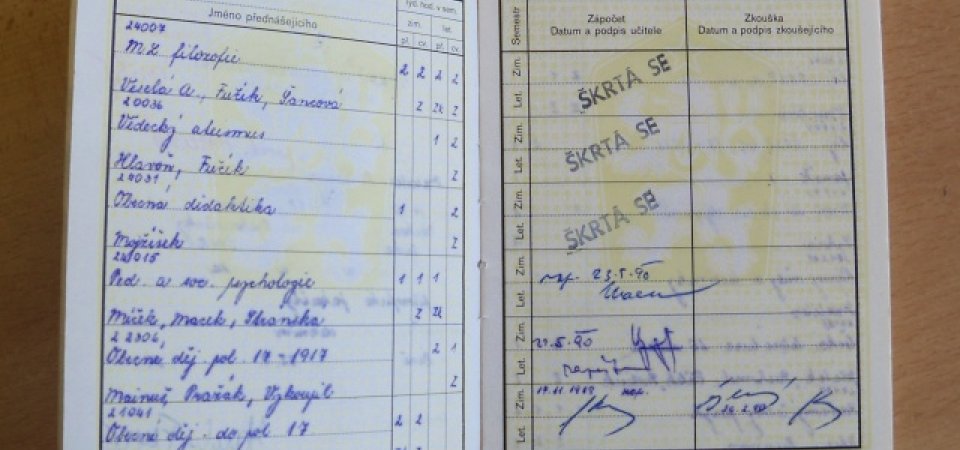 Jméno přednášejícího
týd. hod. v sem.
zim. let.
př. cv. př. cv.
24007
M.L. filozofie 2 2 2 2
Veselá A., Fučík, Šancová 2 Zk Z
20036
Vědecký ateismus 1 2
Hlavoň, Fučík Z
24031
Obecná didaktika 1 2
Mojžíšek Z
24015
Ped. a soc. psychologie 1 1 1
Míček, Macek, Z Zk
22306,
Obecné děj. pol. 17 - 1917 2 1
Mainuš Pražák, Vykoupil Z
21041
Obecné děj. do pol 17 2 2
Semestr
Zápočet
Datum a podpis učitele
Zkouška
Datum a podpis zkoušejícího
Zim.
Let.
ŠKRTÁ SE
Zim.
Let.
ŠKRTÁ SE
Zim.
Let.
ŠKRTÁ SE
Zim.
zap. 23.5.90
Let.
Zim.
22.5.90
Let.
Zim.
Let.